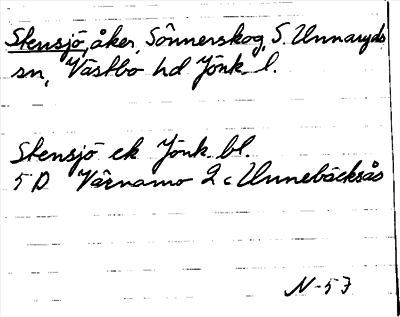 Stensjö, åker, Sönnerskog, S. Unnaryds
sn, Västbo hd Jönk. l.
Stensjö ek Jönk. bl.
5 D Värnamo 2 c Unnebäcksås
N-57